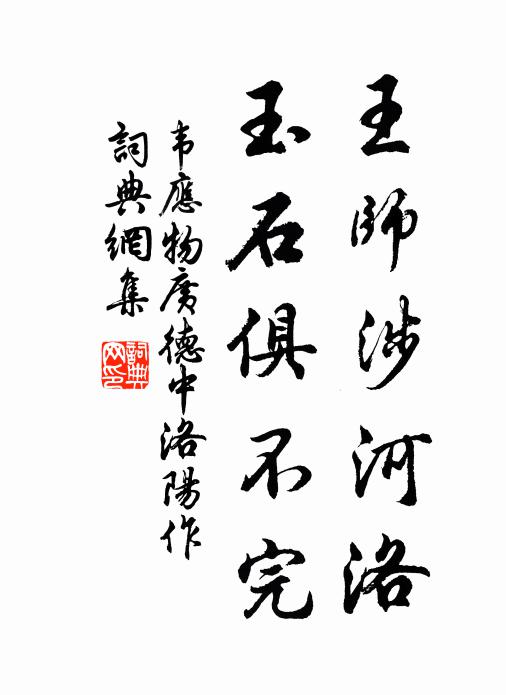 王師涉河洛
玉石俱不完
韦應物廣德中洛陽作
詞典網集
詞典网印